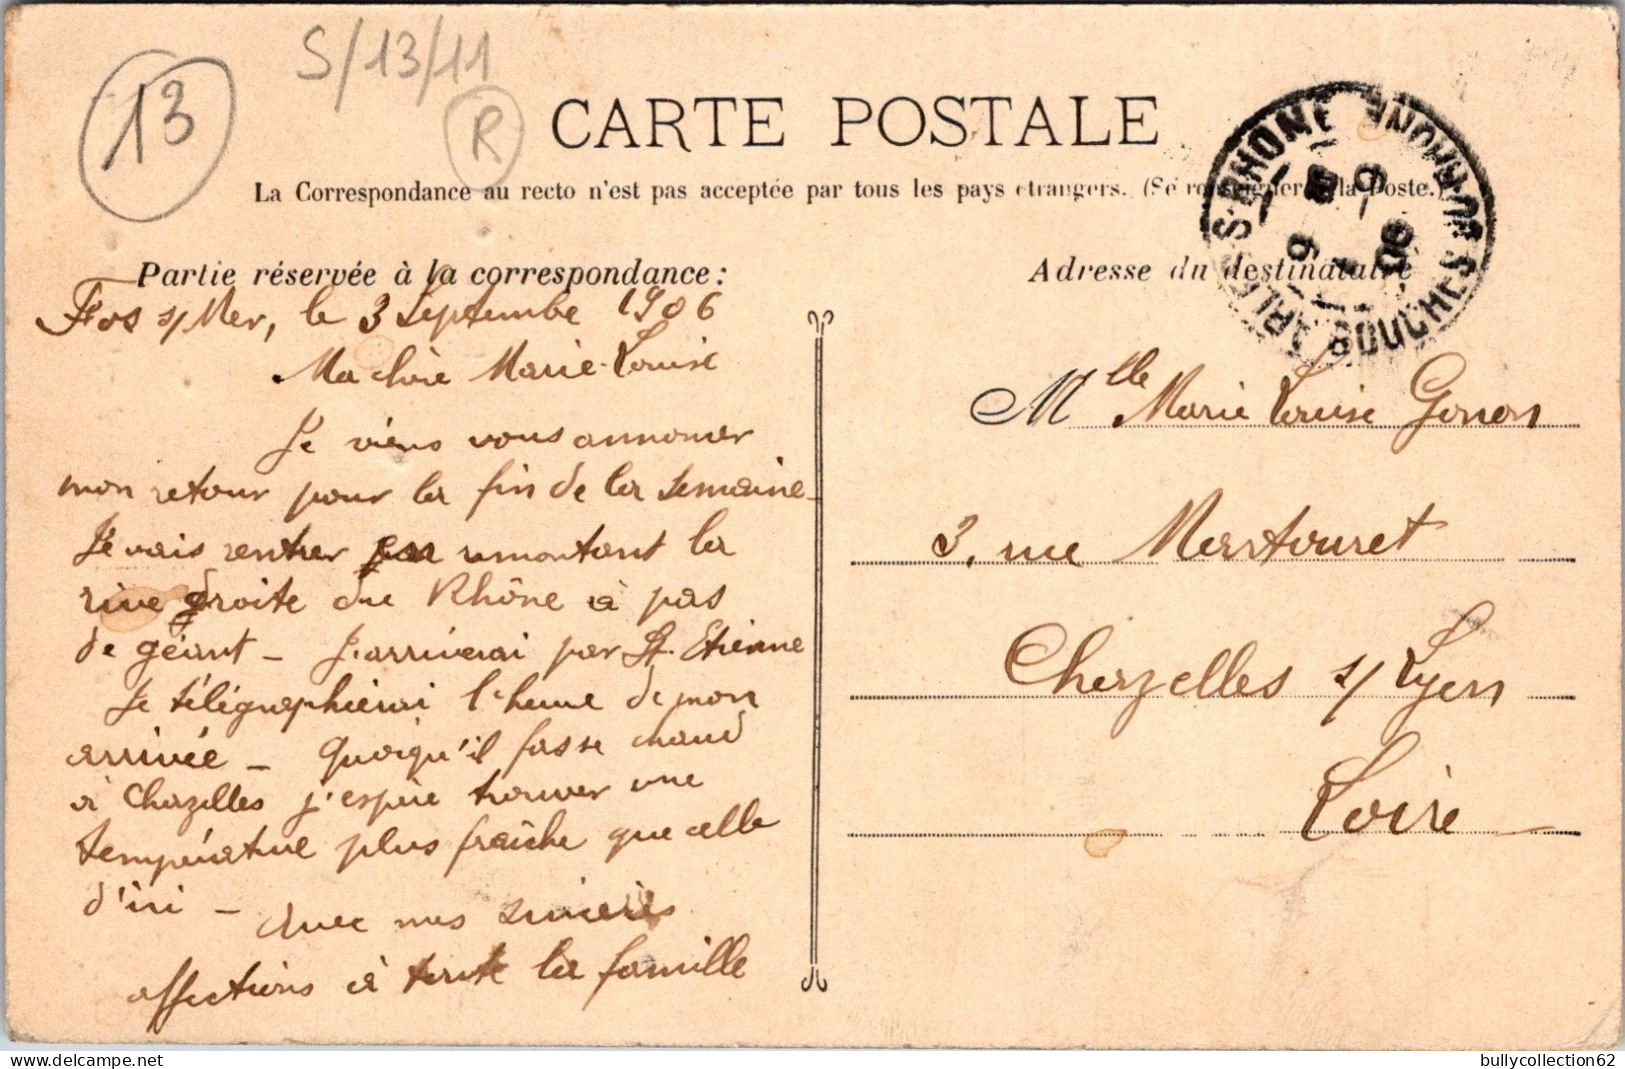 S/13/11
13
R
CARTE POSTALE
La Correspondance au recto n'est pas acceptée par tous les pays étrangers. (Se renseigner à la Poste.)
Partie réservée à la correspondance :
Fos s/ Mer, le 3 Septembre 1906
Ma chère Marie-Louise
Je viens vous annoncer
mon retour pour la fin de la semaine -
Je vais rentrer en remontant la
rive droite du Rhône à pas
de géant - J'arriverai par St. Etienne
Je télégraphierai l'heure de mon
arrivée - Quoiqu'il fasse chaud
à Chazelles j'espère trouver une
température plus fraîche que celle
d'ici - Avec mes sincères
affections à toute la famille
Adresse du destinataire
Mlle Marie Louise Gonon
3, rue
Chazelles s/ Lyon
Loire
ARLES-S-RHONE BOUCHES DU RHONE
bullycollection62